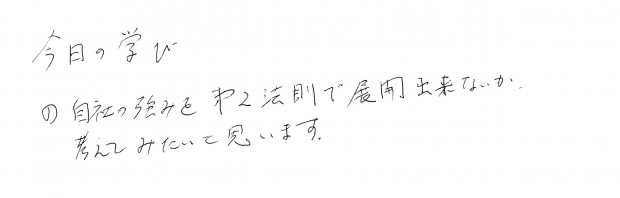 今日の学び
① 自社の強みを 才2法則で展開出来ないか、
考えてみたいと思います。